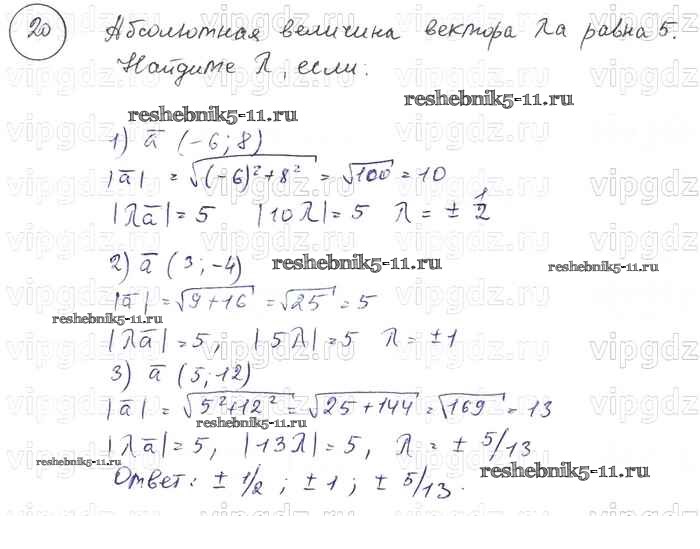 20 Абсолютная величина вектора λa равна 5.
Найдите λ, если:
reshebnik5-11.ru
reshebnik5-11.ru
1) a̅ (-6; 8)
|a̅| = √((-6)²+8²) = √100 = 10
|λa̅| = 5 |10λ| = 5 λ = ± 1/2
2) a̅ (3; -4)
reshebnik5-11.ru
reshebnik5-11.ru
|a̅| = √(9+16) = √25 = 5
reshebnik5-11.ru
|λa̅| = 5, |5λ| = 5 λ = ±1
3) a̅ (5; 12)
|a̅| = √(5²+12²) = √(25+144) = √169 = 13
reshebnik5-11.ru
|λa̅| = 5, |13λ| = 5, λ = ± 5/13
reshebnik5-11.ru
reshebnik5-11.ru
Ответ: ± 1/2 ; ± 1 ; ± 5/13.
vipgdz